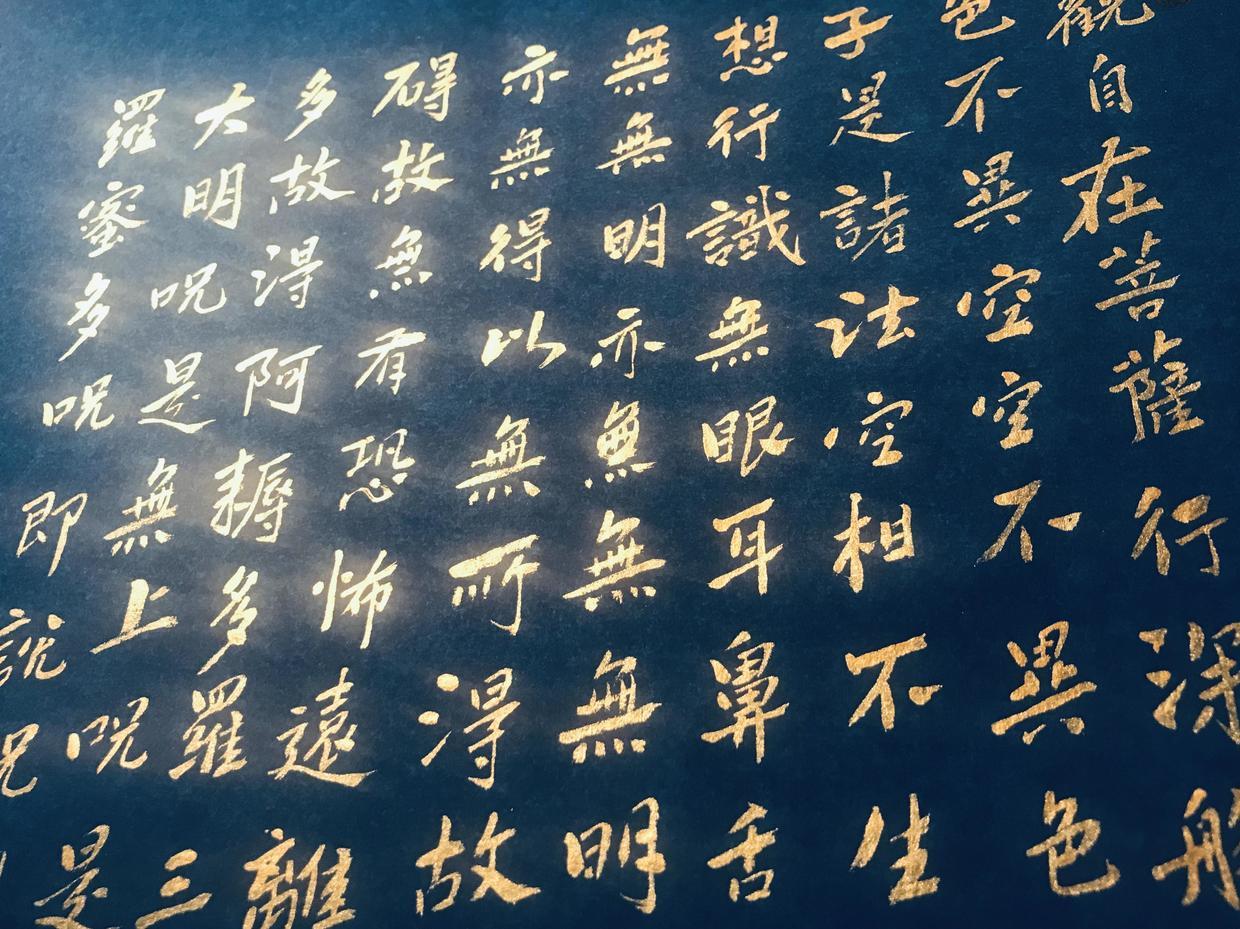 觀自在菩薩行深般
色不異空空不異色
子是諸法空相不生
想行識無眼耳鼻舌
無無明亦無無無明
亦無得以無所得故
碍故無有恐怖遠離
多故得阿耨多羅三
大明呪是無上呪是
羅蜜多呪即說呪